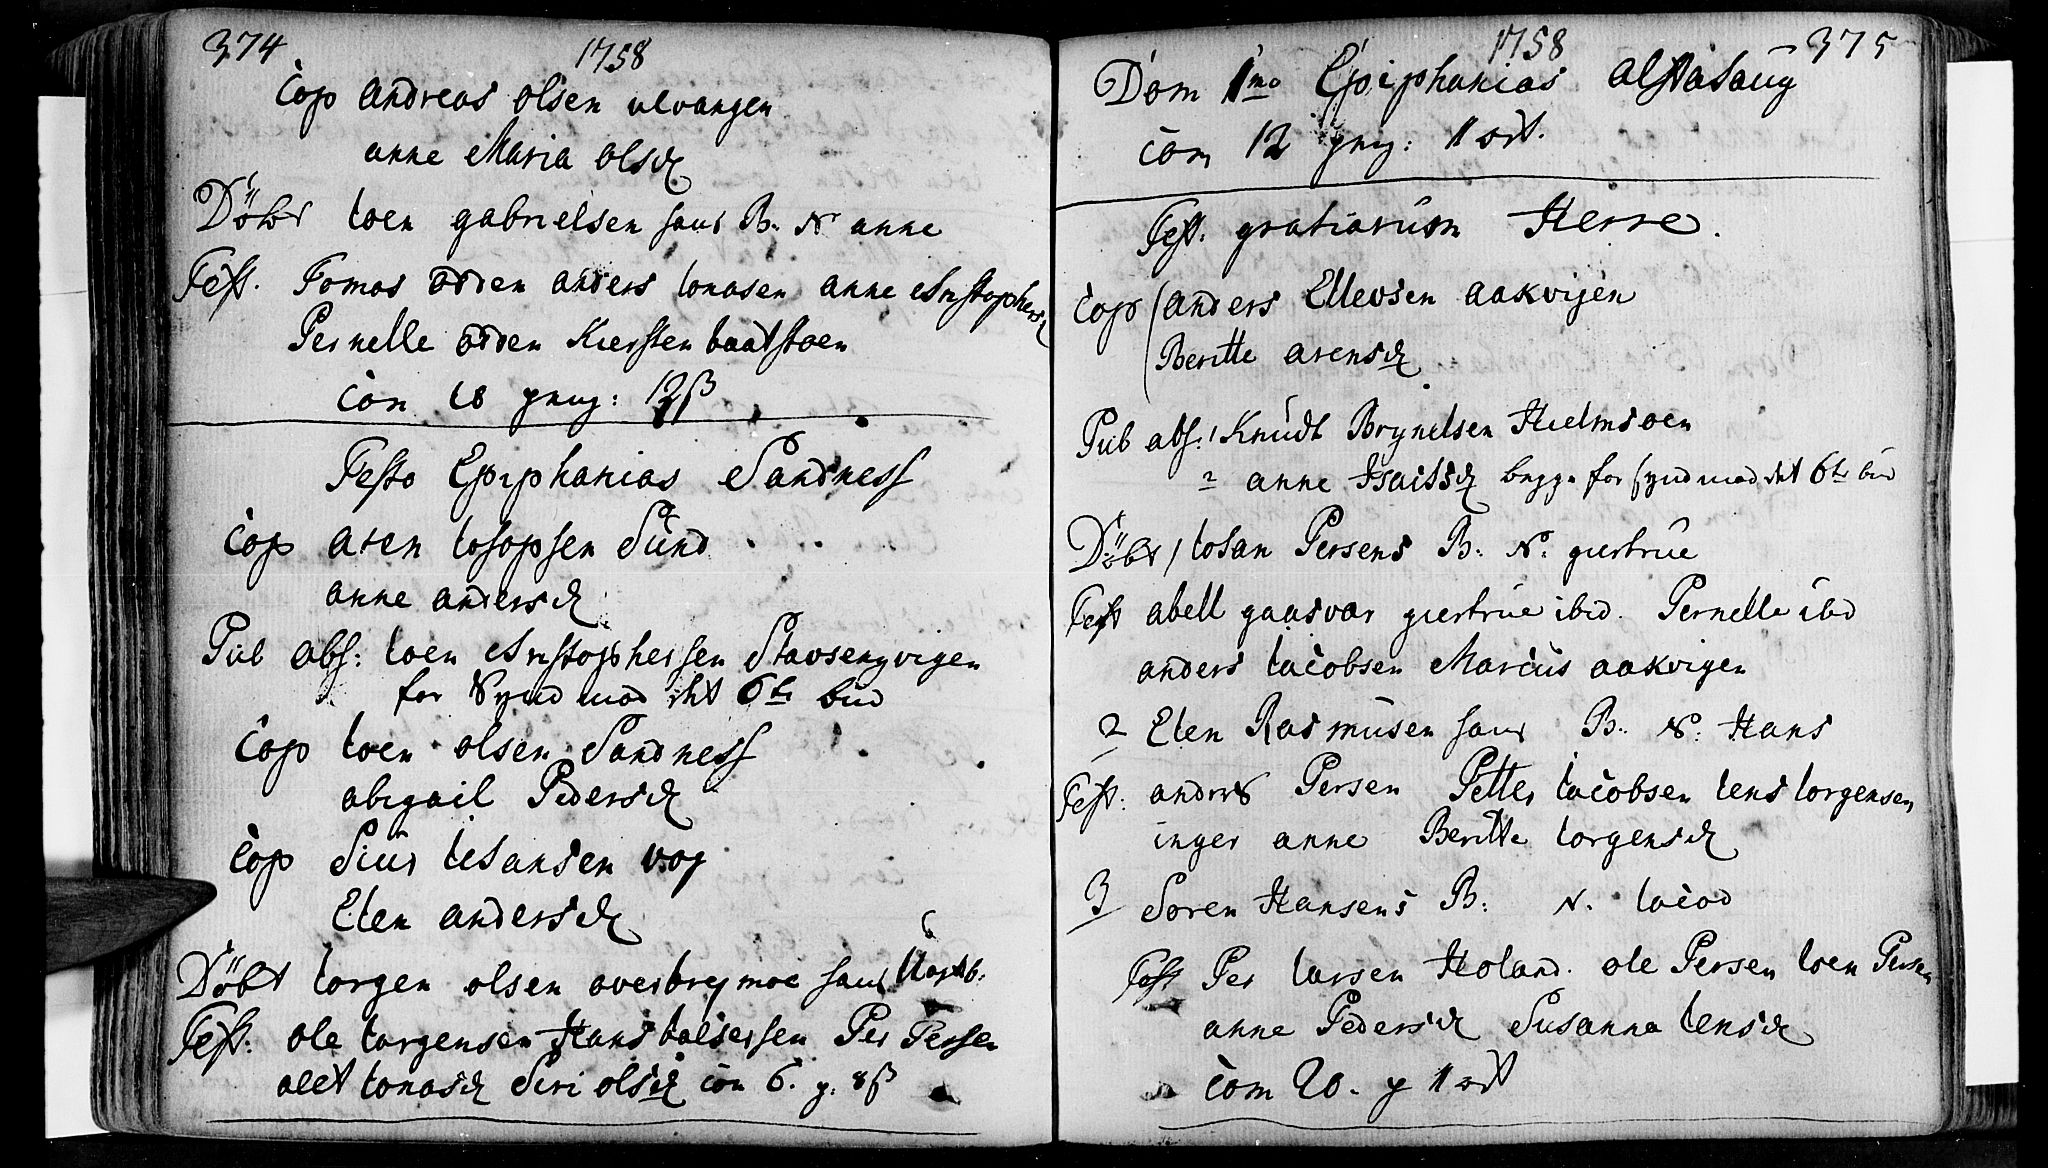 374
1758
Cop andreas olsen ulvangen
anne Maria olsd
Döbt loen gabrielsen hans B. N anne
Test. Tomas odden anders lonasen anne christophersd
Pernelle odden Kiersten baatstoen
Com 18 pnng: 12 β
Festo Epiphanias Sandness
Cop aren losopsen Sund
anne andersd
Pub abs: loen christophersen Stavsengvigen
for Synd mod det 6te bud
Cop loen olsen Sandness
abigail Pedersd
Cop Siur lohansen vog
Elen andersd
Döbt lorgen olsen overbrejmoe hans
Test. ole lorgensen Hans balsersen Per Persen
alet lonasd Siri olsd com 6. p. 8 β
1758
375
Dom 1mo Epiphanias alstahaug
Com 12 pnng: 1 ort.
Fest. gratiarum Herrø.
Cop anders Ellevsen aakvigen
Beritte arensd
Pub abs: 1 Knudt Brynelsen Hielmsoen
2 anne Isaksd begge for synd mod det 6te bud
Döbt 1 lohan Persens B. N. giertrue
Test abell gaasvar giertrue ibid. Pernelle ibid
anders lacobsen Marcus aakvigen
2 Elen Rasmusen hans B. N. Hans
Test: anders Persen Petter lacobsen lens lorgensen
inger anne Beritte lorgensd
3 Soren Hansens B. N. lacob
Test Per larsen Holand. ole Persen loen Persen
anne Pedersd Susanna lensd
Com 20. p 1 ort